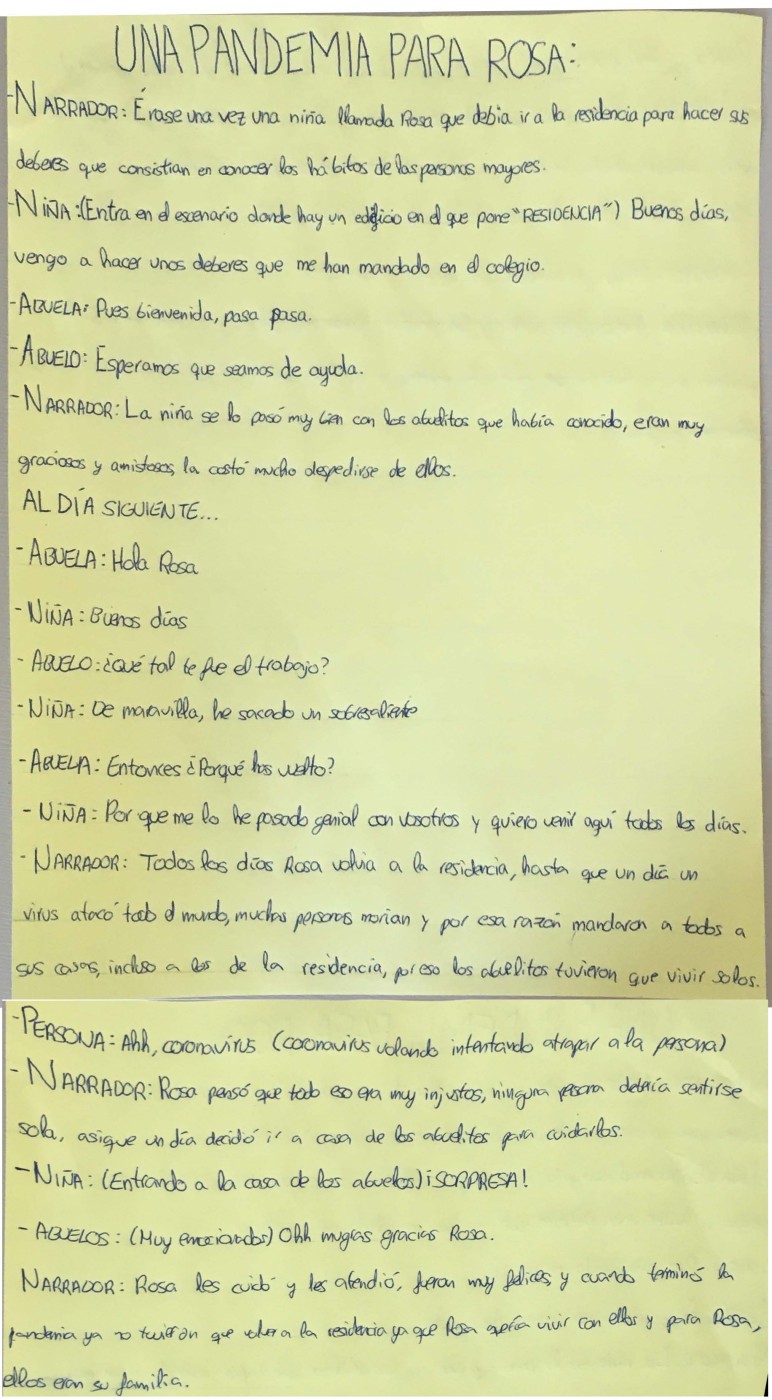 UNA PANDEMIA PARA ROSA:
-NARRADOR: Érase una vez una niña llamada Rosa que debia ir a la residencia para hacer sus
deberes que consistian en conocer los hábitos de las personas mayores.
-NIÑA:(Entra en el escenario donde hay un edificio en el que pone "RESIDENCIA") Buenos días,
vengo a hacer unos deberes que me han mandado en el colegio.
-ABUELA: Pues bienvenida, pasa pasa.
-ABUELO: Esperamos que seamos de ayuda.
-NARRADOR: La niña se lo pasó muy bien con los abuelitos que había conocido, eran muy
graciosos y amistosos, la costó mucho despedirse de ellos.
AL DÍA SIGUIENTE...
-ABUELA: Hola Rosa
-NIÑA: Buenos días
-ABUELO: ¿Qué tal te fue el trabajo?
-NIÑA: De maravilla, he sacado un sobresaliente
-ABUELA: Entonces ¿Porqué has vuelto?
-NIÑA: Por que me lo he pasado genial con vosotros y quiero venir aquí todos los días.
-NARRADOR: Todos los días Rosa volvia a la residencia, hasta que un día un
virus atacó todo el mundo, muchas personas morian y por esa razón mandaron a todos a
sus casas, incluso a los de la residencia, por eso los abuelitos tuvieron que vivir solos.
-PERSONA: Ahh, coronavirus (coronavirus volando intentando atrapar a la persona)
-NARRADOR: Rosa pensó que todo eso era muy injustos, ninguna persona debería sentirse
sola, asique un día decidó ir a casa de los abuelitos para cuidarlos.
-NIÑA: (Entrando a la casa de los abuelos) ¡SORPRESA!
-ABUELOS: (Muy emocionados) Ohh mugías gracias Rosa.
NARRADOR: Rosa les cuidó y les atendió, fueron muy felices, y cuando terminó la
pandemia ya no tuvieron que volver a la residencia ya que Rosa quería vivir con ellos y para Rosa,
ellos eran su familia.